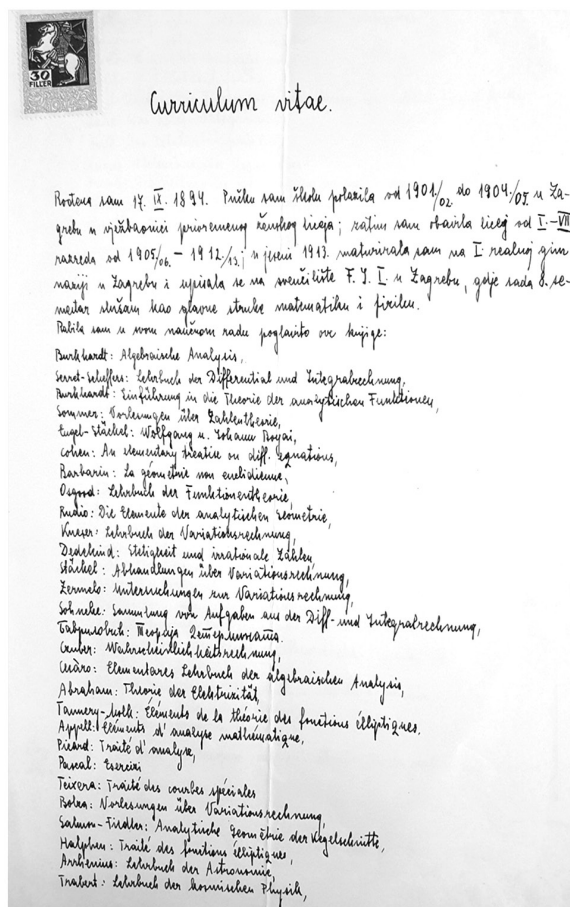 30
FILLER
Curriculum vitae.
Rođena sam 17. IX. 1894. Pučku sam školu polazila od 1901/02. do 1904/05. u Za-
grebu u vježbaonici privremenog ženskog liceja; zatim sam obavila licej od I.–VIII
razreda od 1905/06. – 1912/13.; u jeseni 1913. maturirala sam na I. realnoj gim
naziji u Zagrebu i upisala se na sveučilište F. J. I. u Zagrebu, gdje sada 8. se-
mestar slušam kao glavne struke matematiku i fiziku.
Rabila sam u svom naučnom radu poglavito ove knjige:
Burkhardt: Algebraische Analysis,
Serret-Scheffers: Lehrbuch der Differential und Integralrechnung,
Burkhardt: Einführung in die Theorie der analytischen Funktionen,
Sommer: Vorlesungen über Zahlentheorie,
Engel-Stäckel: Wolfgang u. Johann Bolyai,
Cohen: An elementary treatise on diff. equations,
Barbarin: La géometrie non euclidienne,
Osgood: Lehrbuch der Funktionentheorie,
Rudio: Die Elemente der analytischen Geometrie,
Kneser: Lehrbuch der Variationsrechnung,
Dedekind: Stetigkeit und irrationale Zahlen,
Stäckel: Abhandlungen über Variationsrechnung,
Zermelo: Untersuchungen zur Variationsrechnung,
Sohncke: Sammlung von Aufgaben aus der Diff- und Integralrechnung,
Гавриловић: Теорија Детерминаната.
Czuber: Wahrscheinlichkeitsrechnung,
Cesàro: Elementares Lehrbuch der algebraischen Analysis,
Abraham: Theorie der Elektrizität,
Tannery-Molk: Éléments de la théorie des fonctions élliptiques,
Appell: Eléments d'analyse mathématique,
Picard: Traité d'analyse,
Pascal: Esercizi
Teixera: Traité des courbes spéciales
Bolza: Vorlesungen über Variationsrechnung,
Salmon-Fiedler: Analytische Geometrie der Kegelschnitte,
Halphen: Traité des fonctions élliptiques,
Arrhenius: Lehrbuch der Astronomie,
Trabert: Lehrbuch der kosmischen Physik,